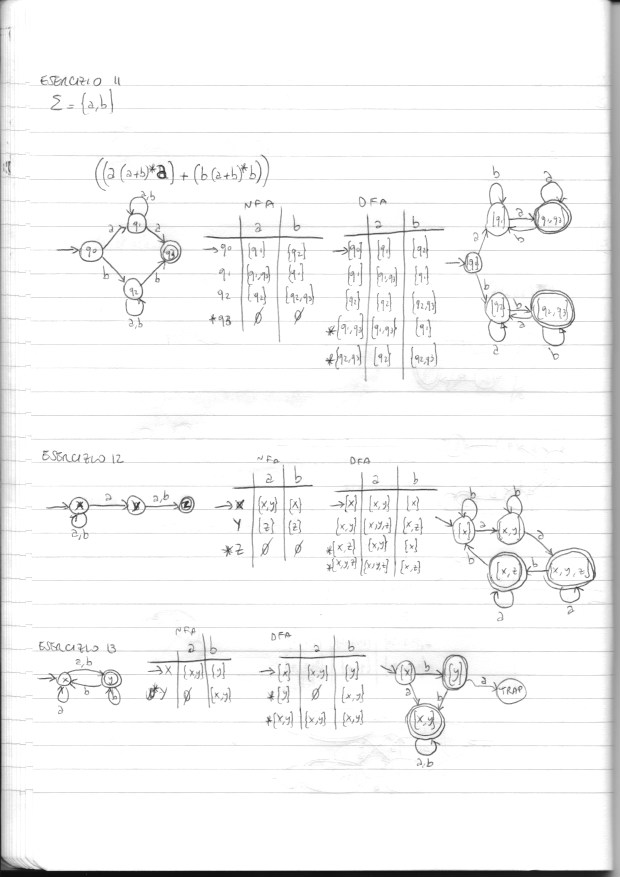 ESERCIZIO 11
Σ = {a,b}
((a (a+b)* a) + (b (a+b)* b))
NFA
a b
→ q0 {q1} {q2}
q1 {q1,q3} {q1}
q2 {q2} {q2,q3}
* q3 ∅ ∅
DFA
a b
→ {q0} {q1} {q2}
{q1} {q1,q3} {q1}
{q2} {q2} {q2,q3}
* {q1,q3} {q1,q3} {q1}
* {q2,q3} {q2} {q2,q3}
q0 a q1 a,b a q3
b q2 a,b b
q0 a {q1} b a b {q1,q3} a
b {q2} a b a {q2,q3} b
ESERCIZIO 12
X a Y a,b Z
a,b
NFA
a b
→ X {x,y} {x}
Y {z} {z}
* Z ∅ ∅
DFA
a b
→ {x} {x,y} {x}
{x,y} {x,y,z} {x,z}
* {x,z} {x,y} {x}
* {x,y,z} {x,y,z} {x,z}
b b
{x} a {x,y} a
b {x,z} b {x,y,z}
a a
ESERCIZIO 13
a,b
x b y
a b
NFA
a b
→ X {x,y} {y}
* Y ∅ {x,y}
DFA
a b
→ {x} {x,y} {y}
* {y} ∅ {x,y}
* {x,y} {x,y} {x,y}
{x} b {y} a TRAP
a b
{x,y}
a,b